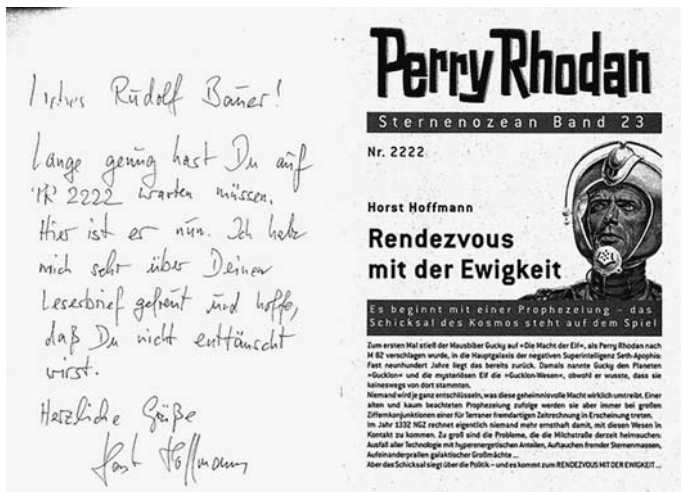 Liebes Rudolf Bauer!
Lange genug hast Du auf
PR 2222 warten müssen.
Hier ist er nun. Ich habe
mich sehr über Deinen
Leserbrief gefreut und hoffe,
daß Du nicht enttäuscht
wirst.
Herzliche Grüße
Horst Hoffmann
Perry Rhodan
Sternenozean Band 23
Nr. 2222
Horst Hoffmann
Rendezvous
mit der Ewigkeit
Es beginnt mit einer Prophezeiung – das
Schicksal des Kosmos steht auf dem Spiel
Zum ersten Mal stieß der Mausbiber Gucky auf »Die Macht der Elf«, als Perry Rhodan nach
M 82 verschlagen wurde, in die Hauptgalaxis der negativen Superintelligenz Seth-Apophis:
Fast neunhundert Jahre liegt das bereits zurück. Damals nannte Gucky den Planeten
»Gucklon« und die mysteriösen Elf die »Gucklon-Wesen«, obwohl er wusste, dass sie
keineswegs von dort stammten.
Niemand wird je ganz entschlüsseln, was diese geheimnisvolle Macht wirklich umtreibt. Einer
alten und kaum beachteten Prophezeiung zufolge werden sie aber immer bei großen
Ziffernkonjunktionen einer für Terraner fremdartigen Zeitrechnung in Erscheinung treten.
Im Jahr 1332 NGZ rechnet eigentlich niemand mehr ernsthaft damit, mit diesen Wesen in
Kontakt zu kommen. Zu groß sind die Probleme, die die Milchstraße derzeit heimsuchen:
Ausfall aller Technologie mit hyperenergetischen Anteilen, Auftauchen fremder Sternenmassen,
Aufeinanderprallen galaktischer Großmächte ...
Aber das Schicksal siegt über die Politik – und es kommt zum RENDEZVOUS MIT DER EWIGKEIT ...